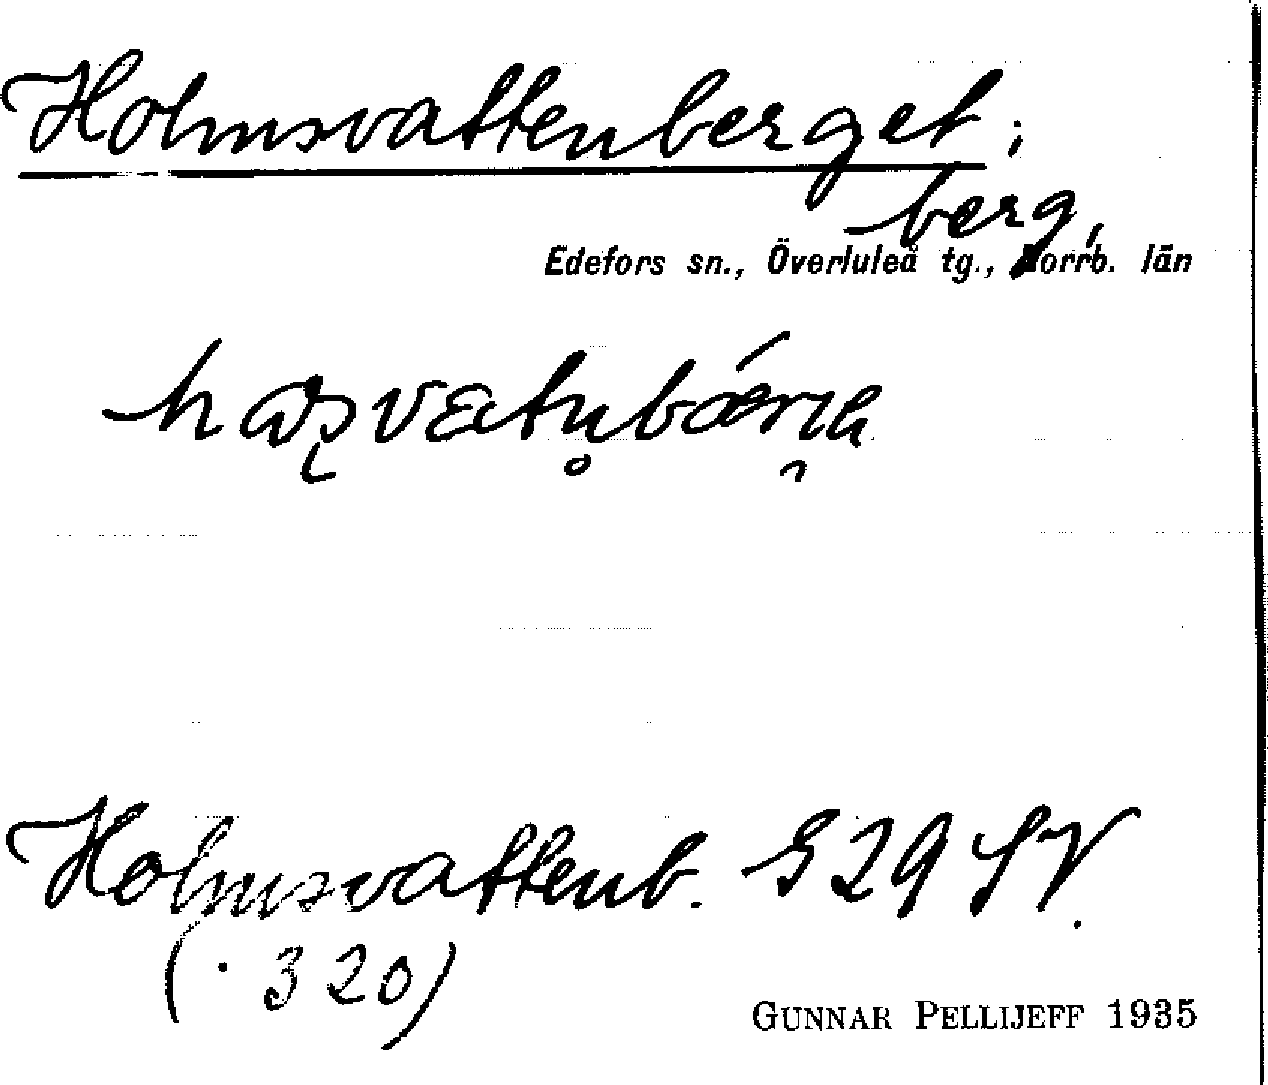 Holmsvattenberget;
berg,
Edefors sn., Överluleå tg., Norrb. län
Holmsvattenb. S29 SV.
(· 320)
GUNNAR PELLIJEFF 1935